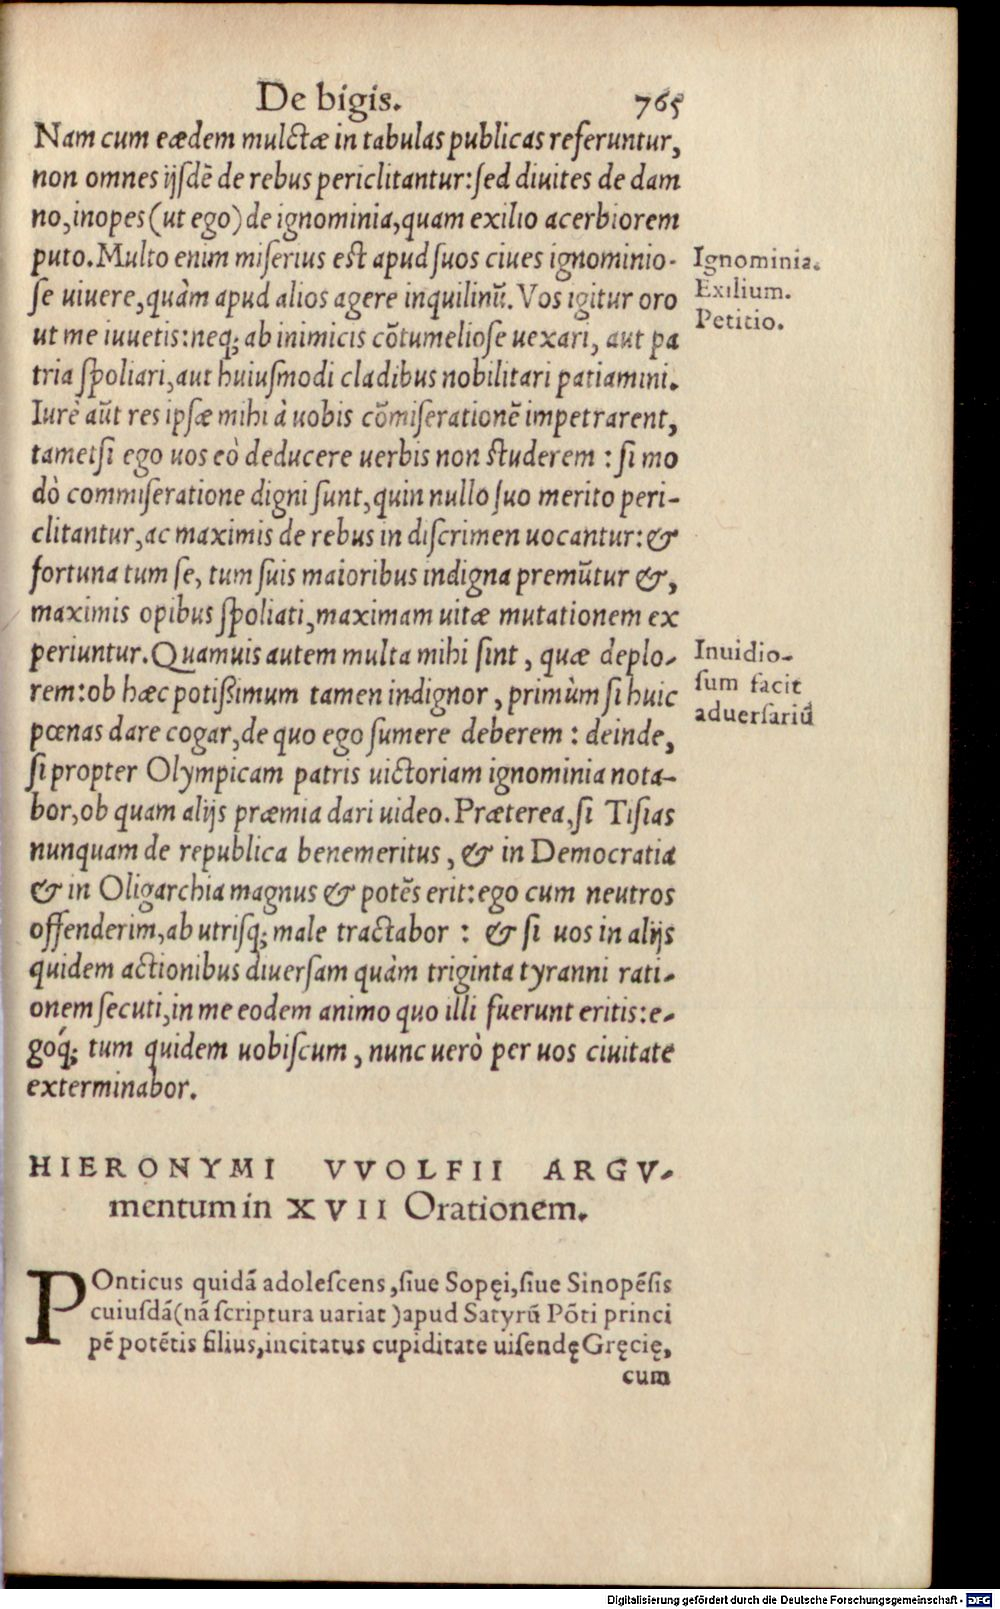 De bigis. 765
Nam cum eædem mulctæ in tabulas publicas referuntur,
non omnes ijsdē de rebus periclitantur: sed diuites de dam
no, inopes (ut ego) de ignominia, quam exilio acerbiorem
puto. Multo enim miserius est apud suos ciues ignominio-
se uiuere, quàm apud alios agere inquilinū. Vos igitur oro
ut me iuuetis: neq; ab inimicis cōtumeliose uexari, aut pa
tria spoliari, aut huiusmodi cladibus nobilitari patiamini.
Iurè aūt res ipsæ mihi à uobis cōmiserationē impetrarent,
tametsi ego uos eò deducere uerbis non studerem : si mo
dò commiseratione digni sunt, quin nullo suo merito peri-
clitantur, ac maximis de rebus in discrimen uocantur: &
fortuna tum se, tum suis maioribus indigna premūtur &,
maximis opibus spoliati, maximam uitæ mutationem ex
periuntur. Quamuis autem multa mihi sint, quæ deplo-
rem: ob hæc potissimum tamen indignor, primùm si huic
pœnas dare cogar, de quo ego sumere deberem : deinde,
si propter Olympicam patris uictoriam ignominia nota-
bor, ob quam alijs præmia dari uideo. Præterea, si Tisias
nunquam de republica benemeritus, & in Democratia
& in Oligarchia magnus & potēs erit: ego cum neutros
offenderim, ab utrisq; male tractabor : & si uos in alijs
quidem actionibus diuersam quàm triginta tyranni rati-
onem secuti, in me eodem animo quo illi fuerunt eritis: e-
goq́; tum quidem uobiscum, nunc uerò per uos ciuitate
exterminabor.
Ignominia.
Exilium.
Petitio.
Inuidio-
sum facit
aduersariū
HIERONYMI VVOLFII ARGV-
mentum in XVII Orationem.
POnticus quidā adolescens, siue Sopęi, siue Sinopēsis
cuiusdā (nā scriptura uariat) apud Satyrū Pōti princi
pē potētis filius, incitatus cupiditate uisendę Gręcię,
cum
Digitalisierung gefördert durch die Deutsche Forschungsgemeinschaft - DFG